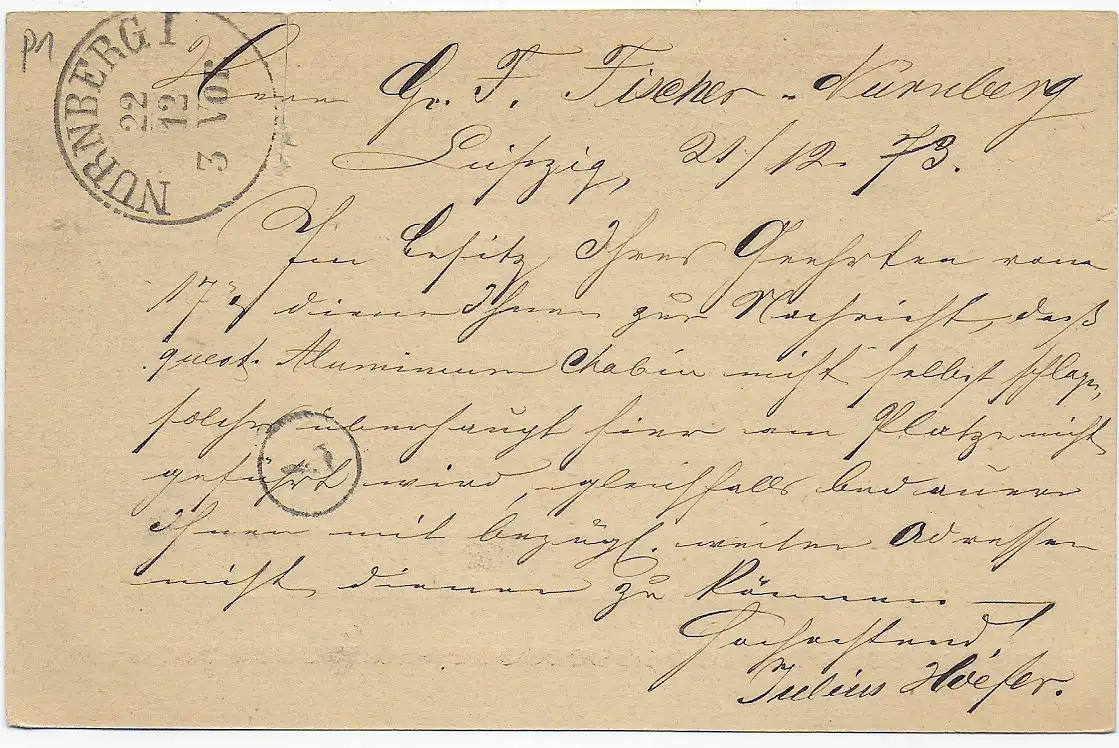 p1
NÜRNBERG I
22
12
3 Vor
Herrn Gr. F. Fischer - Nürnberg
Leipzig, 21/12 73.
Im Besitz Ihres Geehrten vom
17. diene Ihnen zur Nachricht, daß
quest. Aluminium nicht selbst schlage,
solches überhaupt hier am Platze nicht
geführt wird, gleichfalls bedauere
Ihnen mit bezügl. weiteren Adressen
nicht dienen zu können —
Hochachtend!
Julius Hoefer.